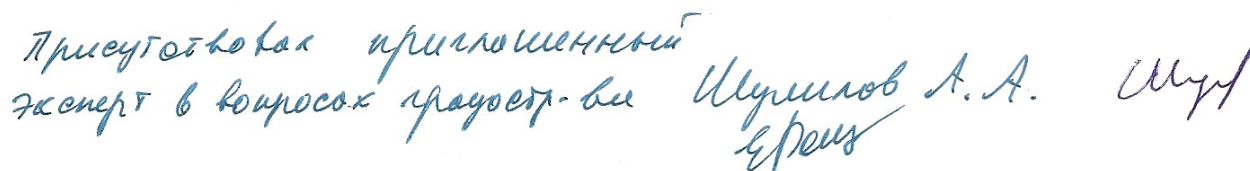 Присутствовал приглашенный
эксперт в вопросах градостр-ва Шумилов А. А.